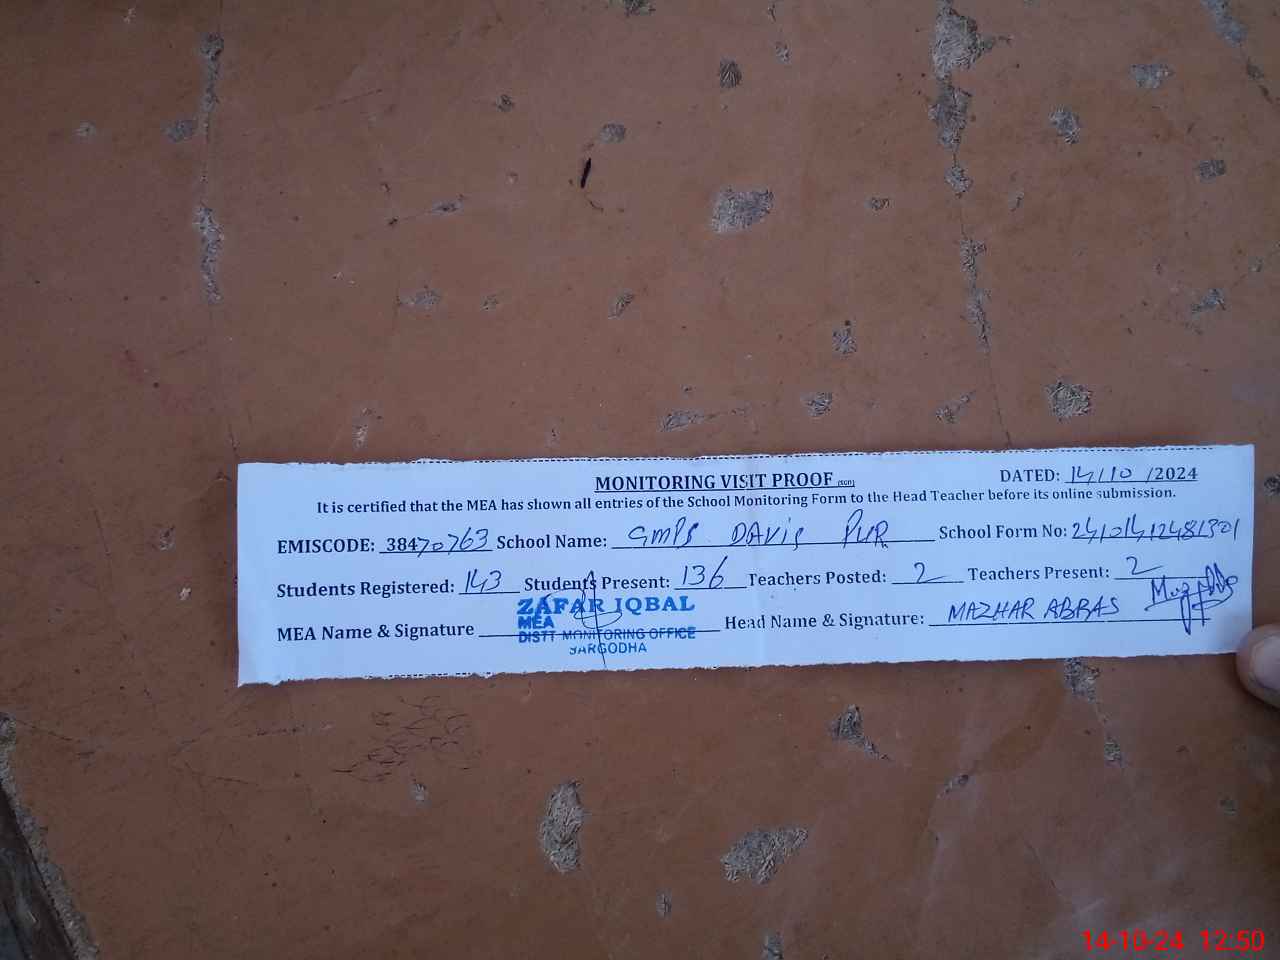 MONITORING VISIT PROOF (SGD)
DATED: 14/10/2024
It is certified that the MEA has shown all entries of the School Monitoring Form to the Head Teacher before its online submission.
EMISCODE: 38470763 School Name: GMPS DAVIS PUR School Form No: 24101412481301
Students Registered: 143 Students Present: 136 Teachers Posted: 2 Teachers Present: 2
MEA Name & Signature ZAFAR IQBAL Head Name & Signature: MAZHAR ABBAS
MEA
DISTT MONITORING OFFICE
SARGODHA
14-10-24 12:50